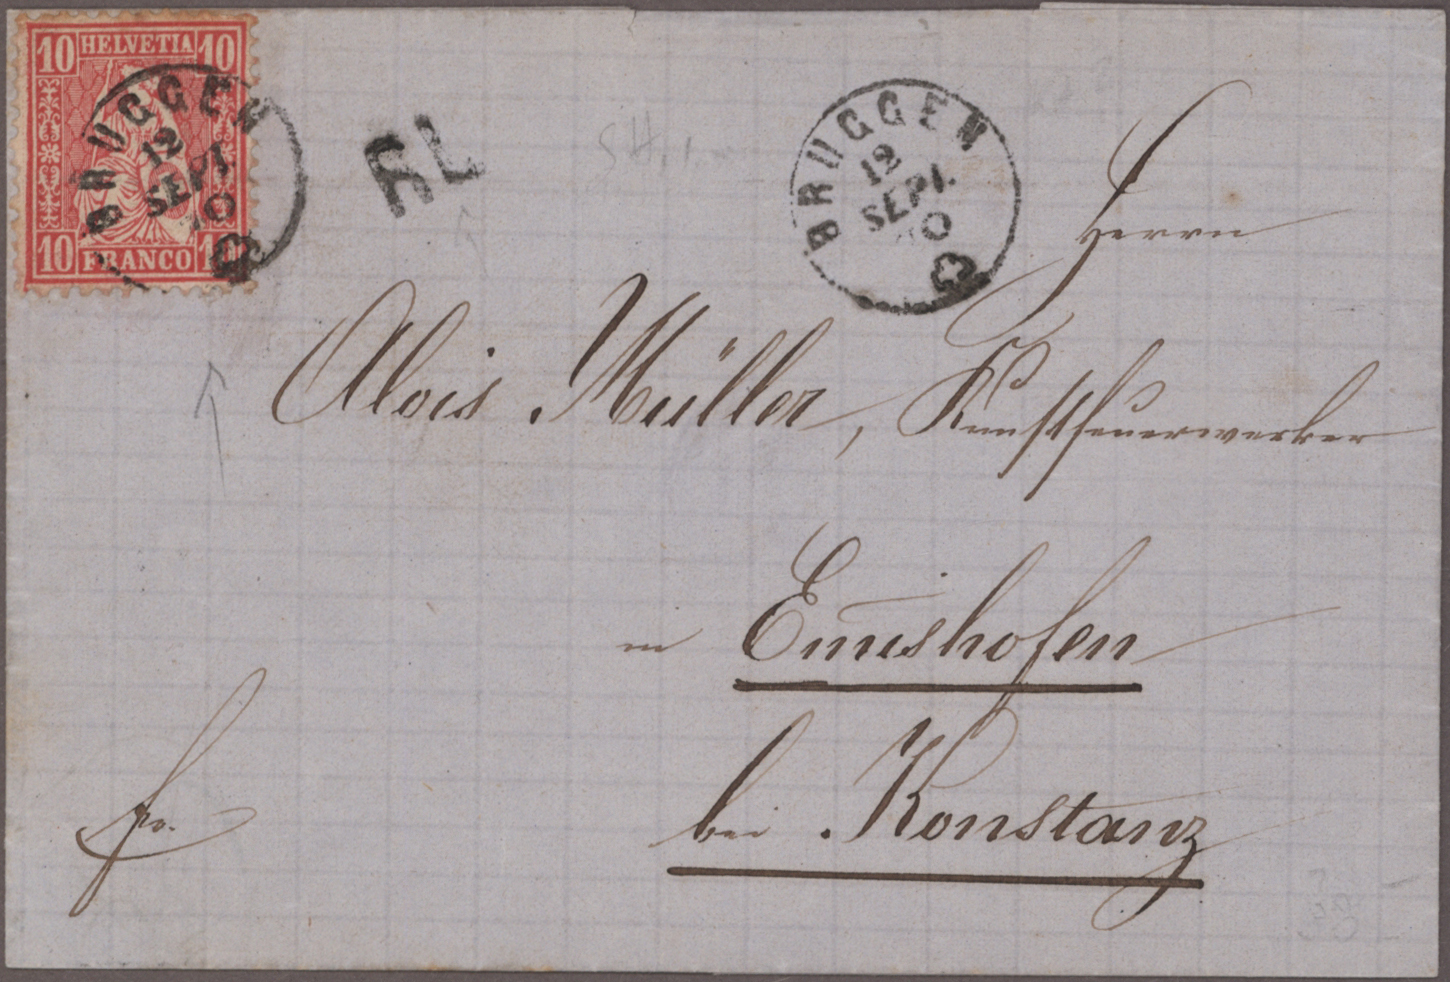 10 HELVETIA 10
10 FRANCO 10
BRUGGEN
12
SEPT.
70
RL
BRUGGEN
12
SEPT.
70
Herrn
Alois Müller, Kunstfeuerwerker
in Emishofen
bei Konstanz
fr.